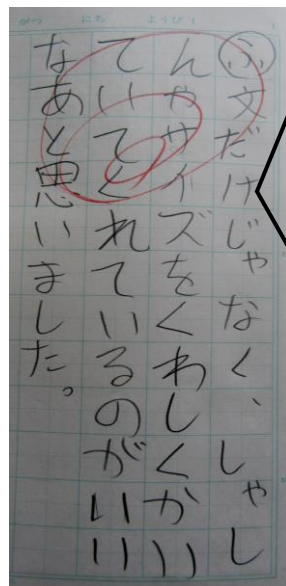 がつ にち ようび
ふ文だけじゃなく、しゃし
んやサイズをくわしくかい
ていてくれているのがいい
なあと思いました。